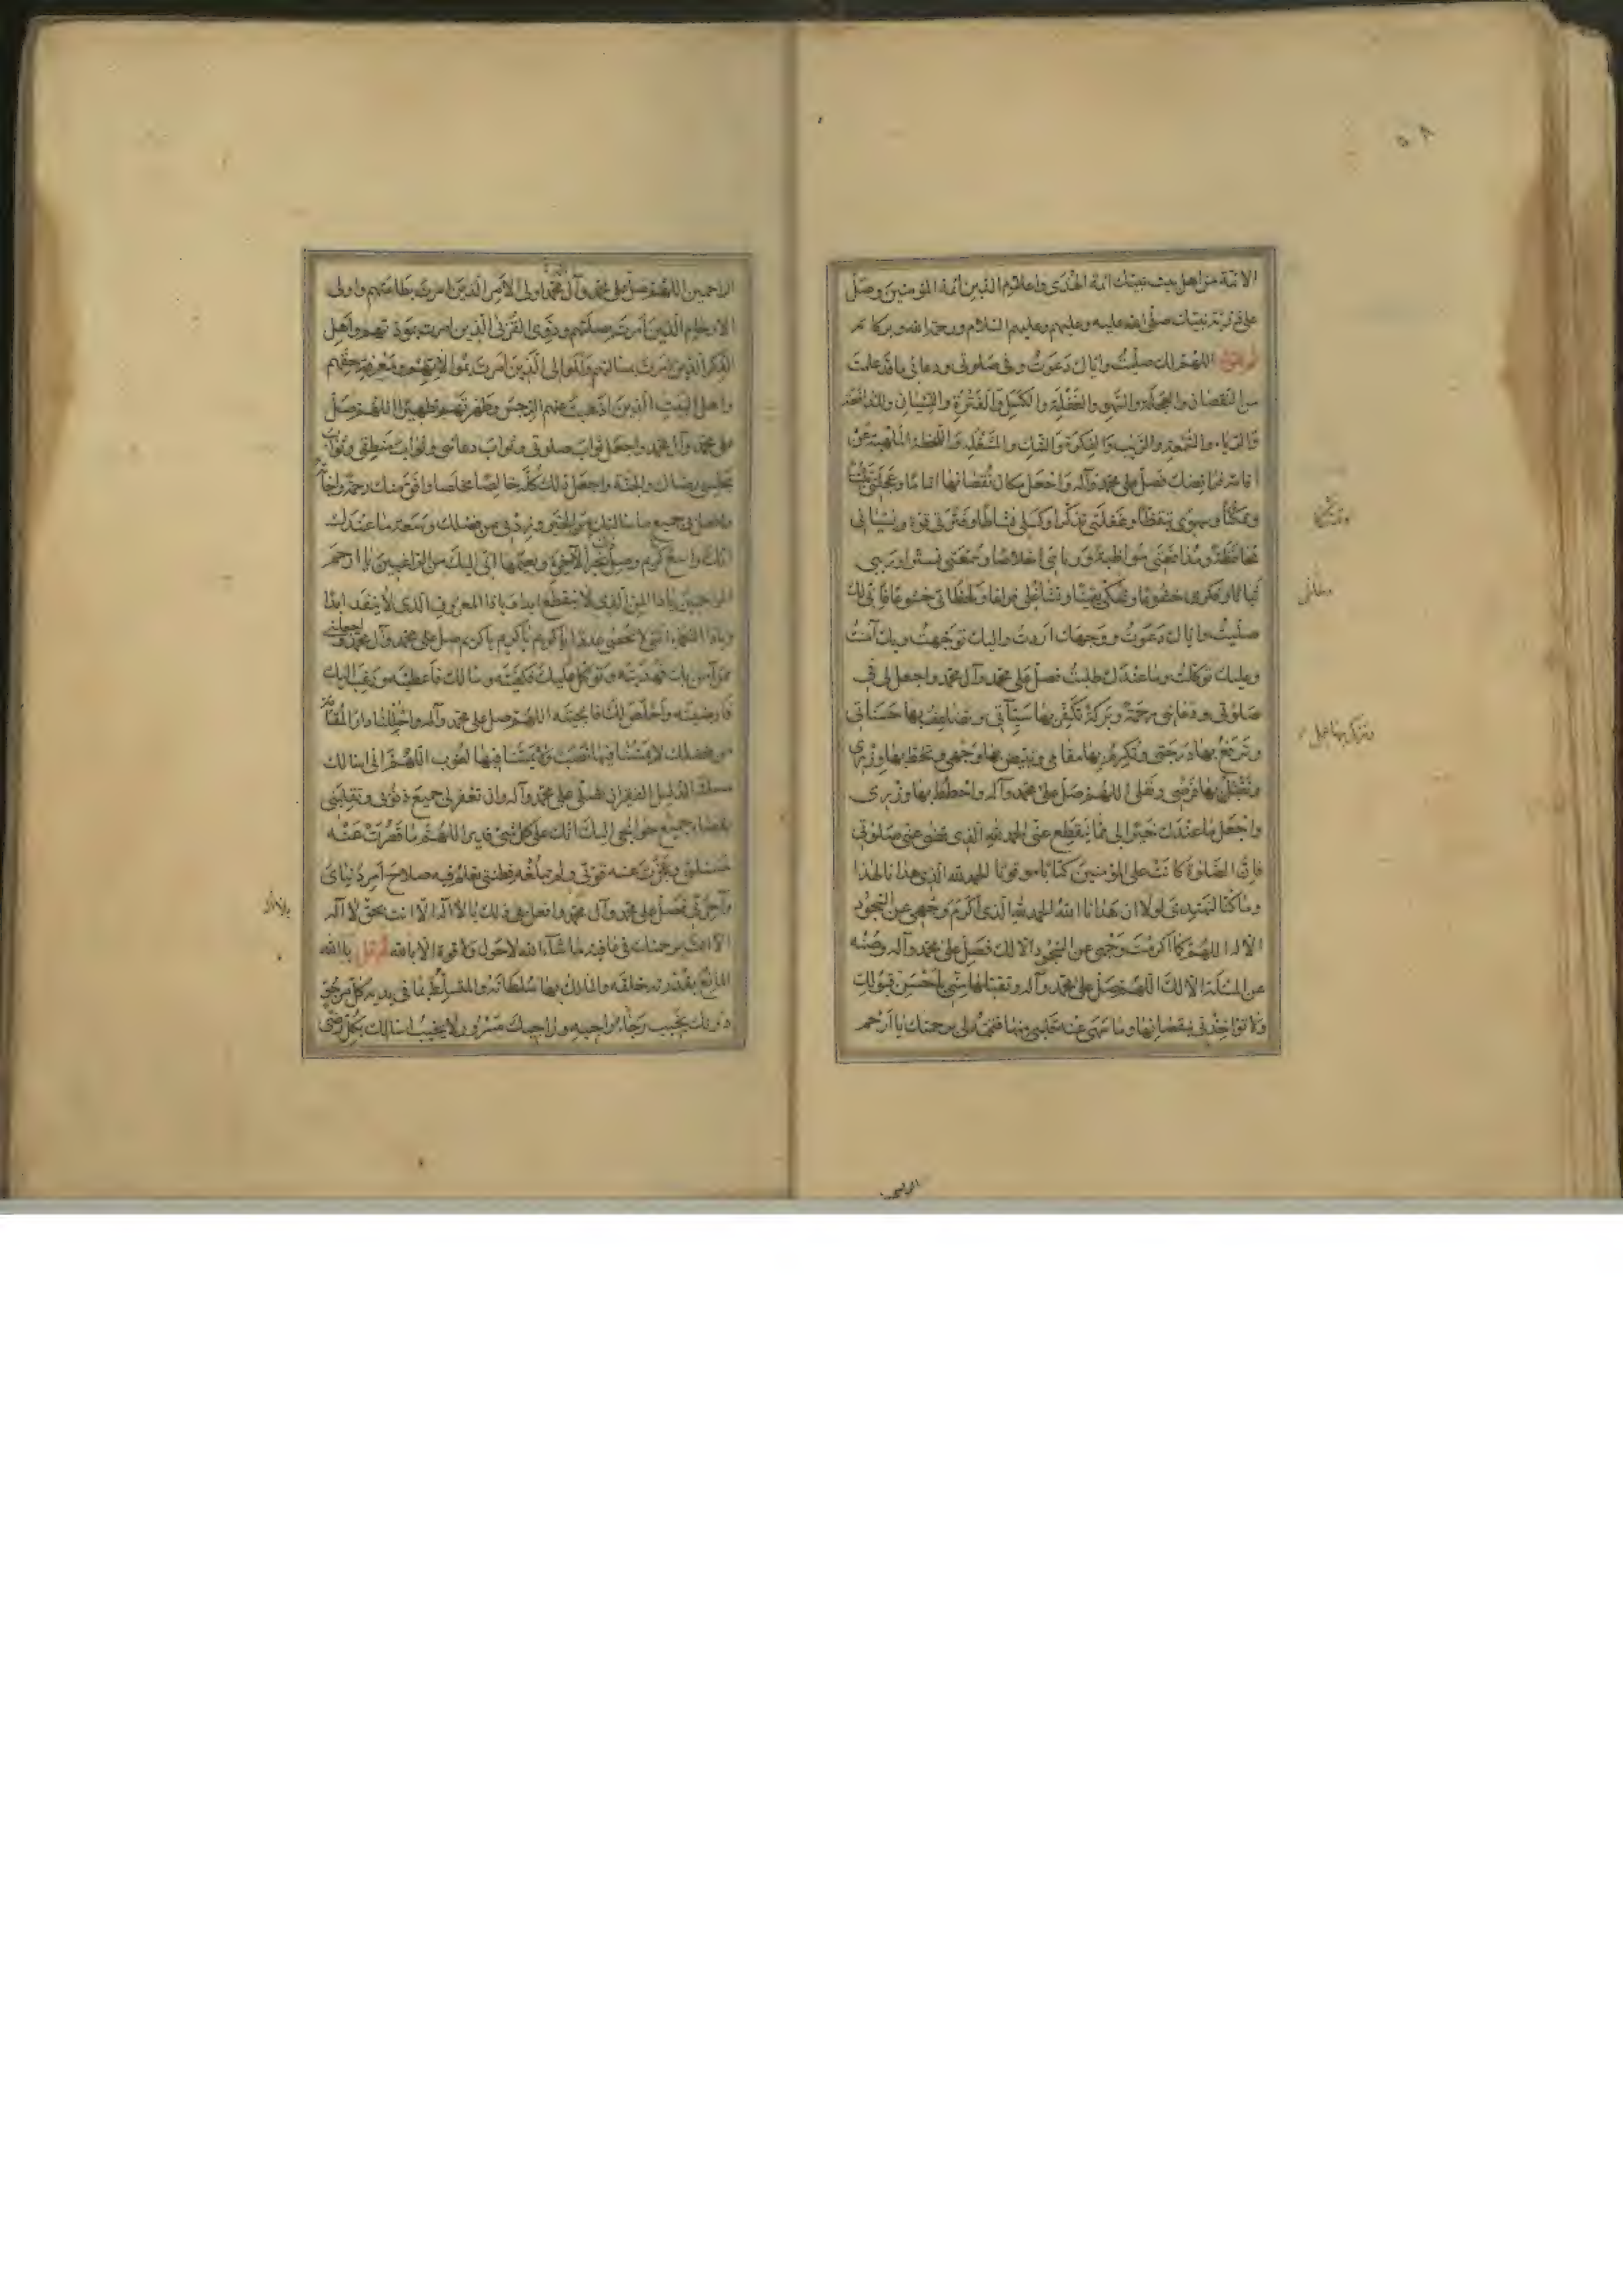 ٥٨
الائمة من اهل بيت نبيك ائمة الهدى واعلام الدين ائمة المؤمنين وصل
على ذرية نبيك صلى الله عليه وعليهم وعليهم السلام ورحمة الله وبركاته
اللهم لك صليت واياك دعوت وفى صلوتى ودعائى ما قد علمت
من النقصان والعجلة والسهو والغفلة والكسل والفترة والنسيان والمدافعة
والرياء والسمعة والريب والفكرة والشك والمشغلة واللحظة الملهية عن
اقامة فرائضك فصل على محمد وآله واجعل مكان نقصانها تماما وعجلتى
وتمكنا وسهوى تيقظا وغفلتى تذكرا وكسلى نشاطا وفترتى قوة ونسيانى
محافظة ومدافعتى مواظبة وريائى اخلاصا وسمعتى تسترا وريبى
ثباتا وفكرى خشوعا وشكى يقينا وتشاغلى فراغا ولحاظى خشوعا فانى لك
صليت واياك دعوت ووجهك اردت واليك توجهت وبك آمنت
وعليك توكلت وما عندك طلبت فصل على محمد وآل محمد واجعل لى فى
صلوتى ودعائى رحمة وبركة تكفر بها سيآتى وتضاعف بها حسناتى
وترفع بها درجتى وتكرم بها مقامى وتبيض بها وجهى وتحط بها وزرى
وتقبل بها فرضى ونفلى اللهم صل على محمد وآله واحطط بها وزرى
واجعل ما عندك خيرا لى مما ينقطع عنى الحمد لله الذى قضى عنى صلوتى
فان الصلوة كانت على المؤمنين كتابا موقوتا الحمد لله الذى هدانا لهذا
وما كنا لنهتدى لولا ان هدانا الله الحمد لله الذى اكرم وجهى عن السجود
الا له اللهم كما اكرمت وجهى عن السجود الا لك فصل على محمد وآله وصنه
عن المسئلة الا لك اللهم صل على محمد وآله وتقبلها منى باحسن قبولك
ولا تؤاخذنى بنقصانها وما سهى عنه قلبى منها فتممه لى برحمتك يا ارحم
وتزكى بها عملى
الراحمين اللهم صل على محمد وآل محمد اولى الامر الذين امرت بطاعتهم واولى
الارحام الذين امرت بصلتهم وذوى القربى الذين امرت بمودتهم واهل
الذكر الذين امرت بمسألتهم والموالى الذين امرت بموالاتهم ومعرفة حقهم
واهل البيت الذين اذهبت عنهم الرجس وطهرتهم تطهيرا اللهم صل
على محمد وآل محمد واجعل ثواب صلوتى وثواب دعائى وثواب منطقى وثواب
مجلسى رضاك والجنة واجعل ذلك كله خالصا مخلصا وافق منك رحمة واجابة
وافعل بى جميع ما سالتك من الخير وزدنى من فضلك وسعة ما عندك
انك واسع كريم وصل بخير الآخرة ونعيمها انى اليك من الراغبين يا ارحم
الراحمين يا ذا المن الذى لا ينقطع ابدا يا ذا المعروف الذى لا ينفد ابدا
ويا ذا النعماء التى لا تحصى عددا يا كريم يا كريم يا كريم صل على محمد وآل محمد واجعلنى
ممن آمن بك فهديته وتوكل عليك فكفيته وسالك فاعطيته ورغب اليك
فارضيته واخلص لك فانجيته اللهم صل على محمد وآله واحللنا دار المقامة
من فضلك لا يمسنا فيها نصب ولا يمسنا فيها لغوب اللهم انى اسالك
مسئلة الذليل الفقير ان تصلى على محمد وآله وان تغفر لى جميع ذنوبى وتقلبنى
بقضاء جميع حوائجى اليك انك على كل شىء قدير اللهم ما قصرت عنه
مسئلتى وعجزت عنه قوتى ولم تبلغه فطنتى تعلم فيه صلاح امر دنياى
وآخرتى فصل على محمد وآل محمد وافعل بى ذلك يا لا اله الا انت بحق لا اله
الا انت برحمتك فى عافية ما شاء الله لا حول ولا قوة الا بالله ثم قل يا الله
المانع بقدرته خلقه والمالك بها سلطانه والمتسلط بما فى يديه كل مرجو
دونك يخيب رجاء راجيه وراجيك مسرور لا يخيب اسالك بكل رضى